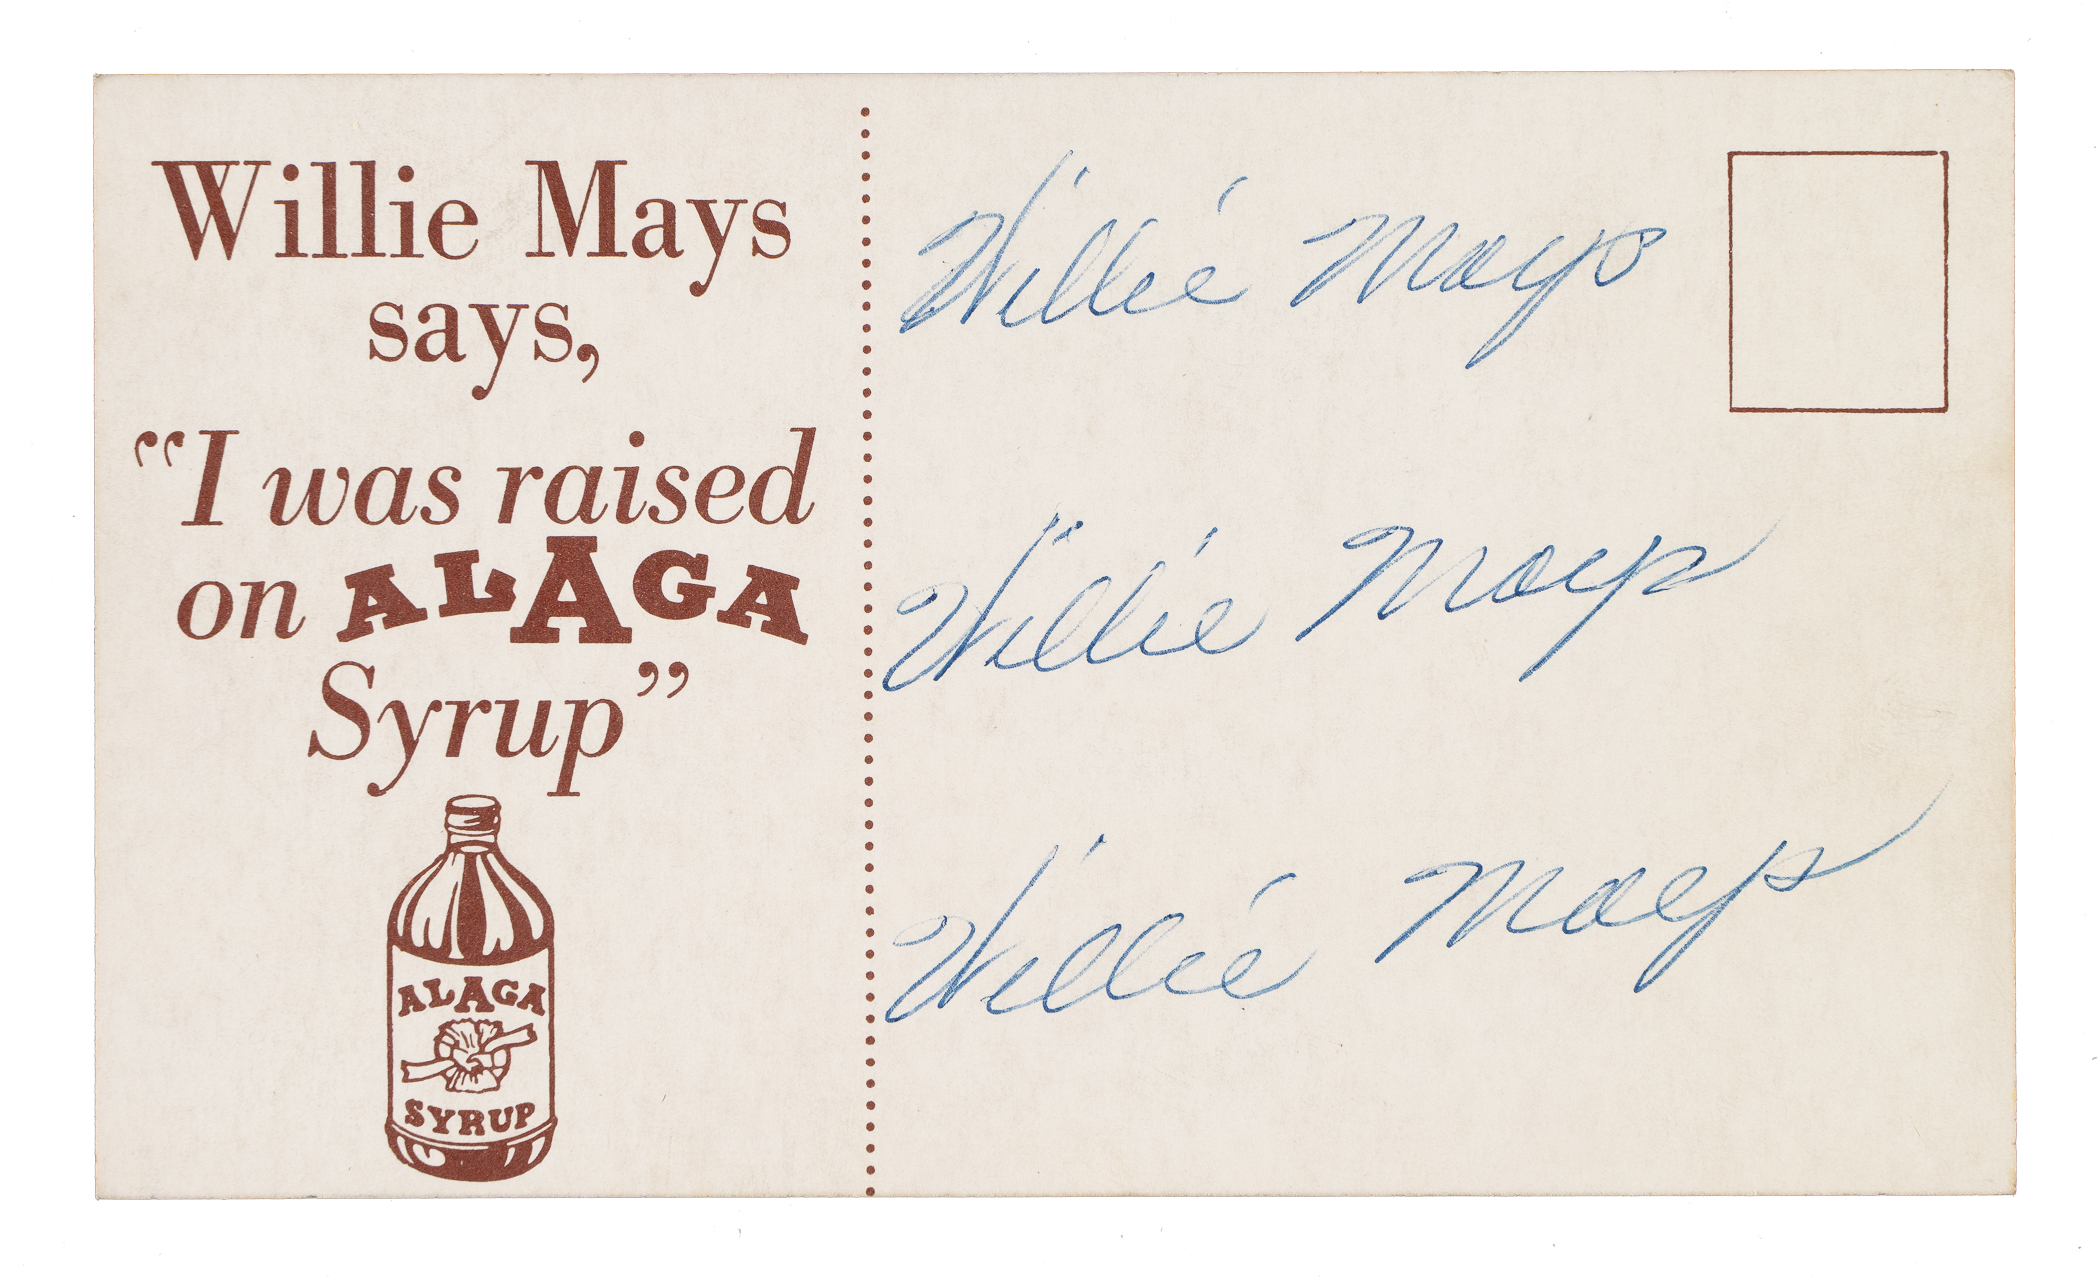 Willie Mays
says,
“I was raised
on ALAGA
Syrup”
ALAGA
SYRUP
Willie Mays
Willie Mays
Willie Mays